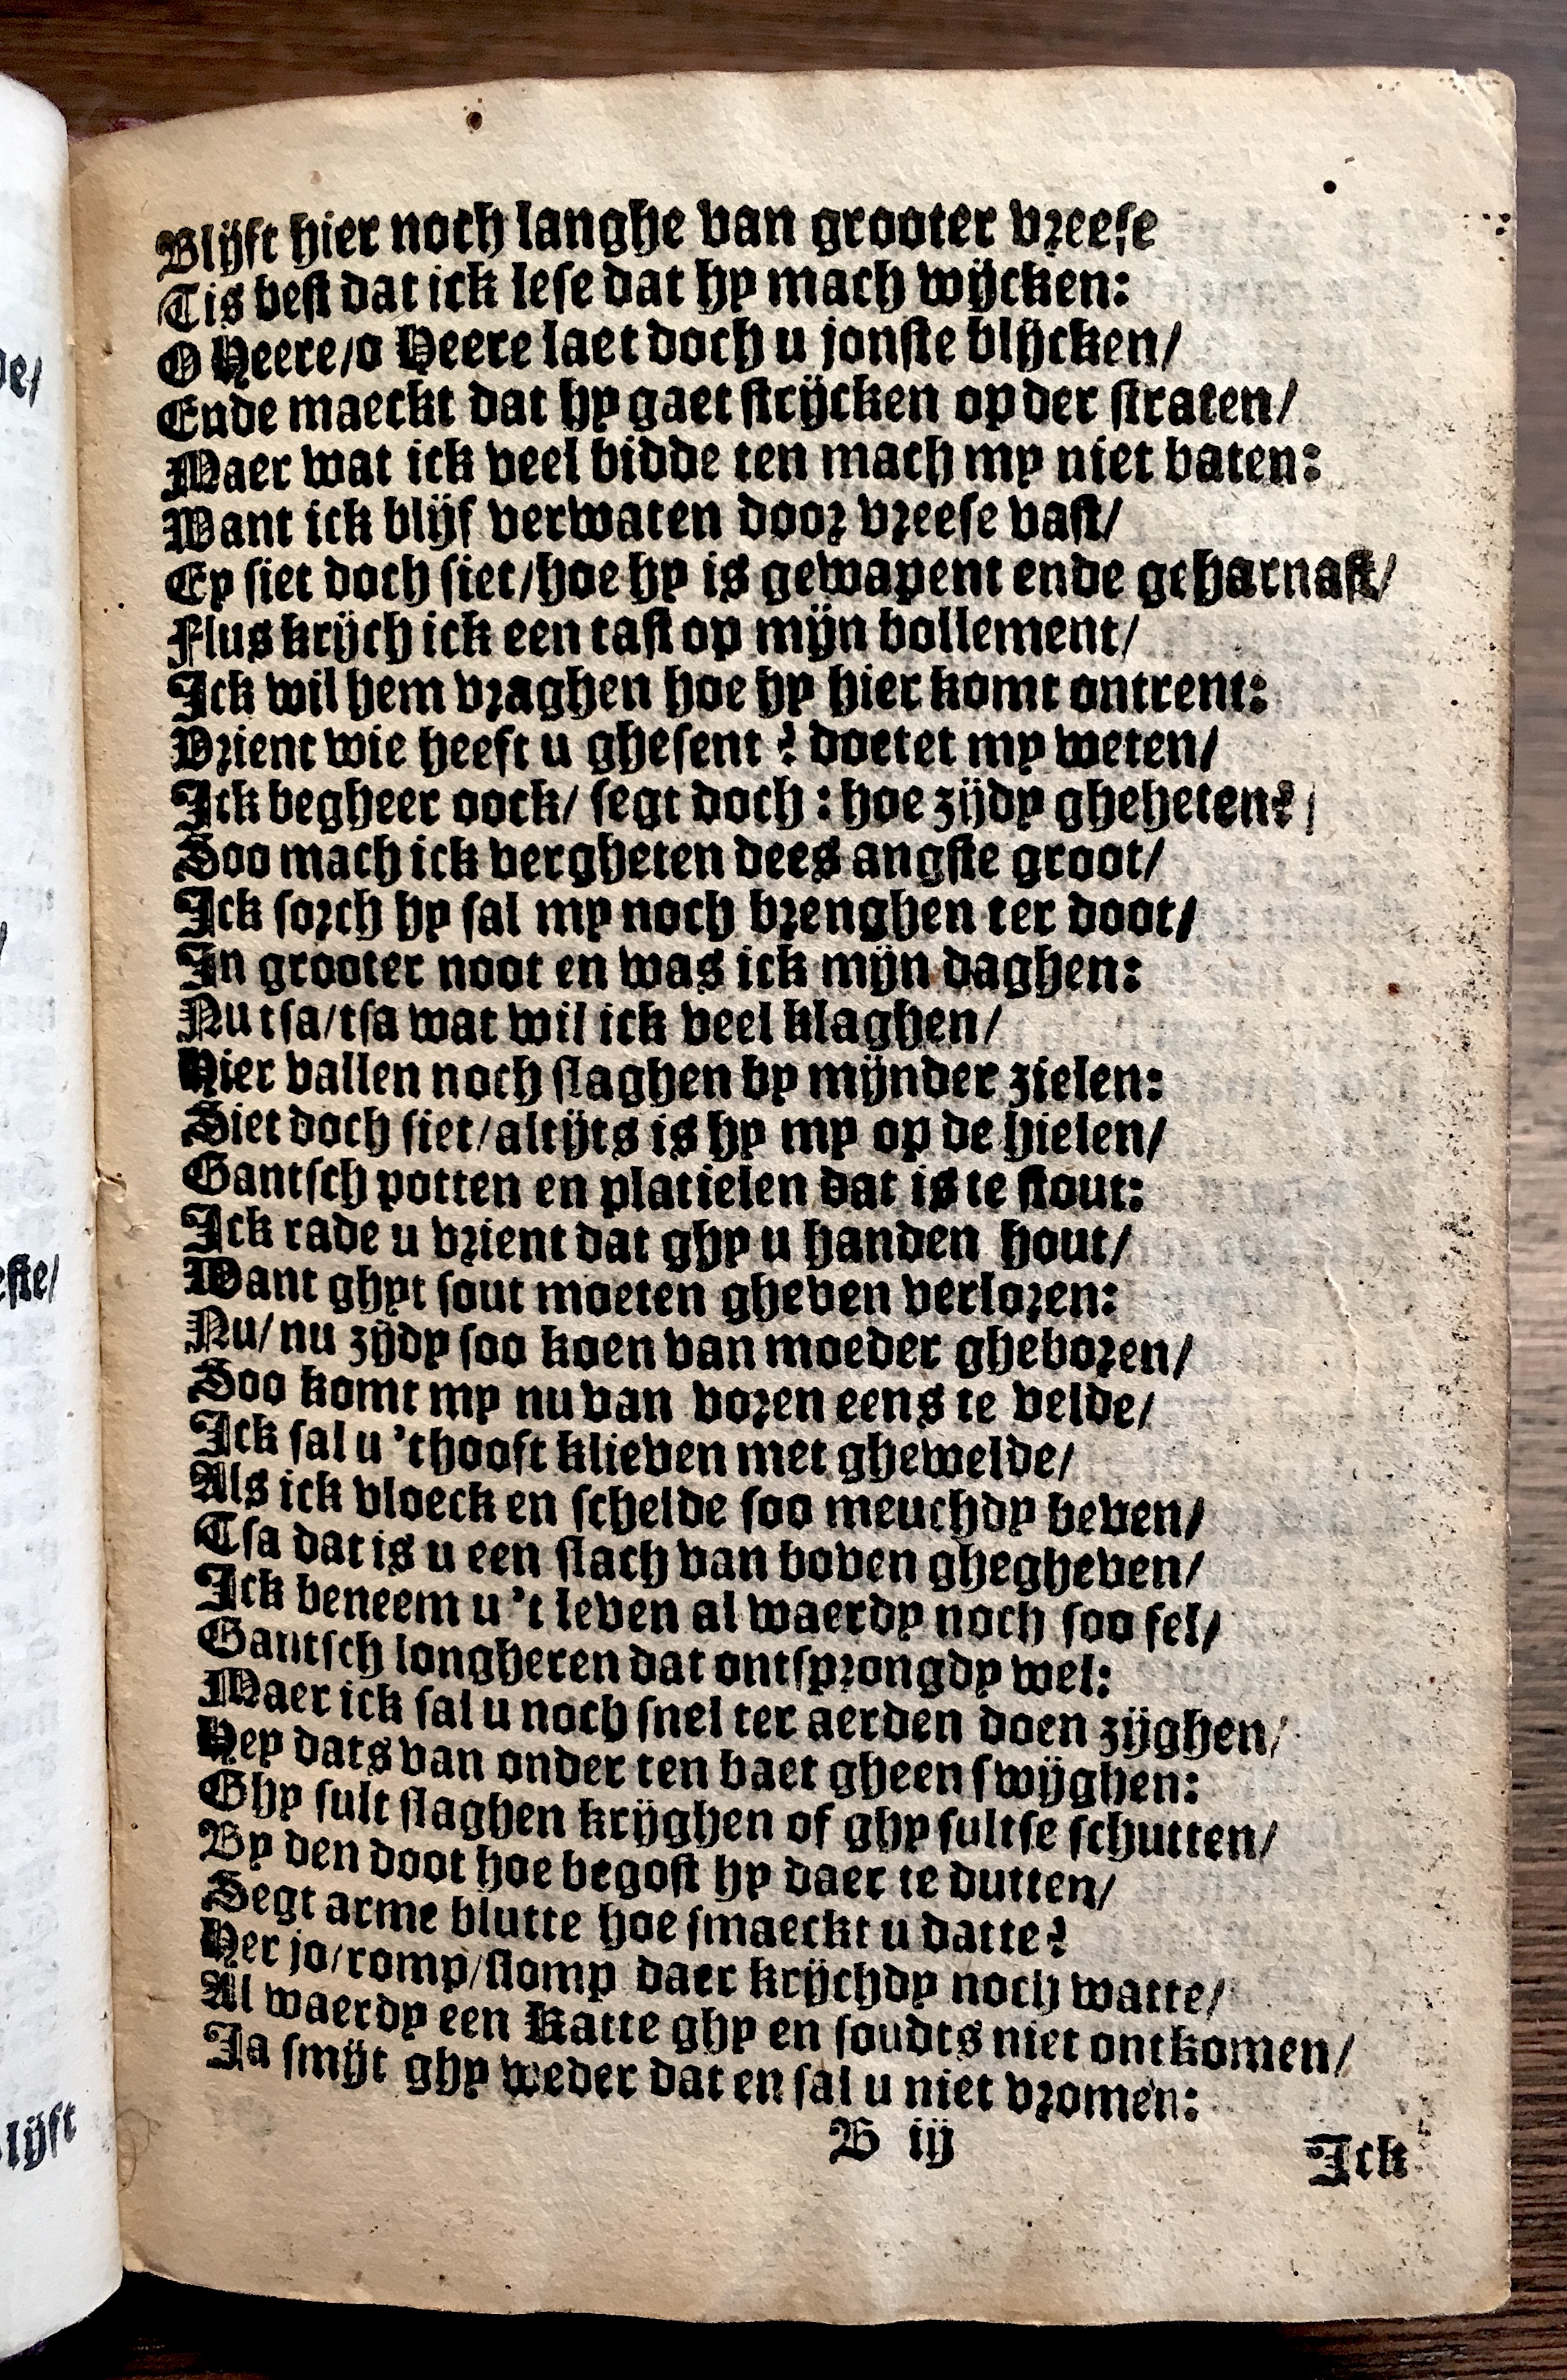 Blijft hier noch langhe van grooter vreese
Tis best dat ick lese dat hy mach wijcken:
O Heere/o Heere laet doch u jonste blijcken/
Ende maeckt dat hy gaet strijcken op der straten/
Maer wat ick veel bidde ten mach my niet baten:
Want ick blijf verwaten door vreese vast/
Ey siet doch siet/hoe hy is gewapent ende geharnast/
Flus krijch ick een tast op mijn bollement/
Ick wil hem vraghen hoe hy hier komt ontrent:
Vrient wie heeft u ghesent? doetet my weten/
Ick begheer oock/ segt doch: hoe zijdy gheheten?/
Soo mach ick vergheten dees angste groot/
Ick sorch hy sal my noch brenghen ter doot/
In grooter noot en was ick mijn daghen:
Nu tsa/tsa wat wil ick veel klaghen/
Hier vallen noch slaghen by mijnder zielen:
Siet doch siet/altijts is hy my op de hielen/
Gantsch potten en platielen dat is te stout:
Ick rade u vrient dat ghy u handen hout/
Want ghyt sout moeten gheven verloren:
Nu/nu zijdy soo koen van moeder gheboren/
Soo komt my nu van voren eens te velde/
Ick sal u 'thooft klieven met ghewelde/
Als ick vloeck en schelde soo meuchdy beven/
Tsa dat is u een slach van boven ghegheven/
Ick beneem u 't leven al waerdy noch soo fel/
Gantsch longheren dat ontsprongdy wel:
Maer ick sal u noch snel ter aerden doen zijghen/
Hey dats van onder ten baet gheen swijghen:
Ghy sult slaghen krijghen of ghy sultse schutten/
By den doot hoe begost hy daer te dutten/
Segt arme blutte hoe smaeckt u datte?
Her jo/romp/stomp daer krijchdy noch watte/
Al waerdy een Katte ghy en soudts niet ontkomen/
Ja smijt ghy weder dat en sal u niet vromen:
B ij
Ick
de/
/
este/
lijft